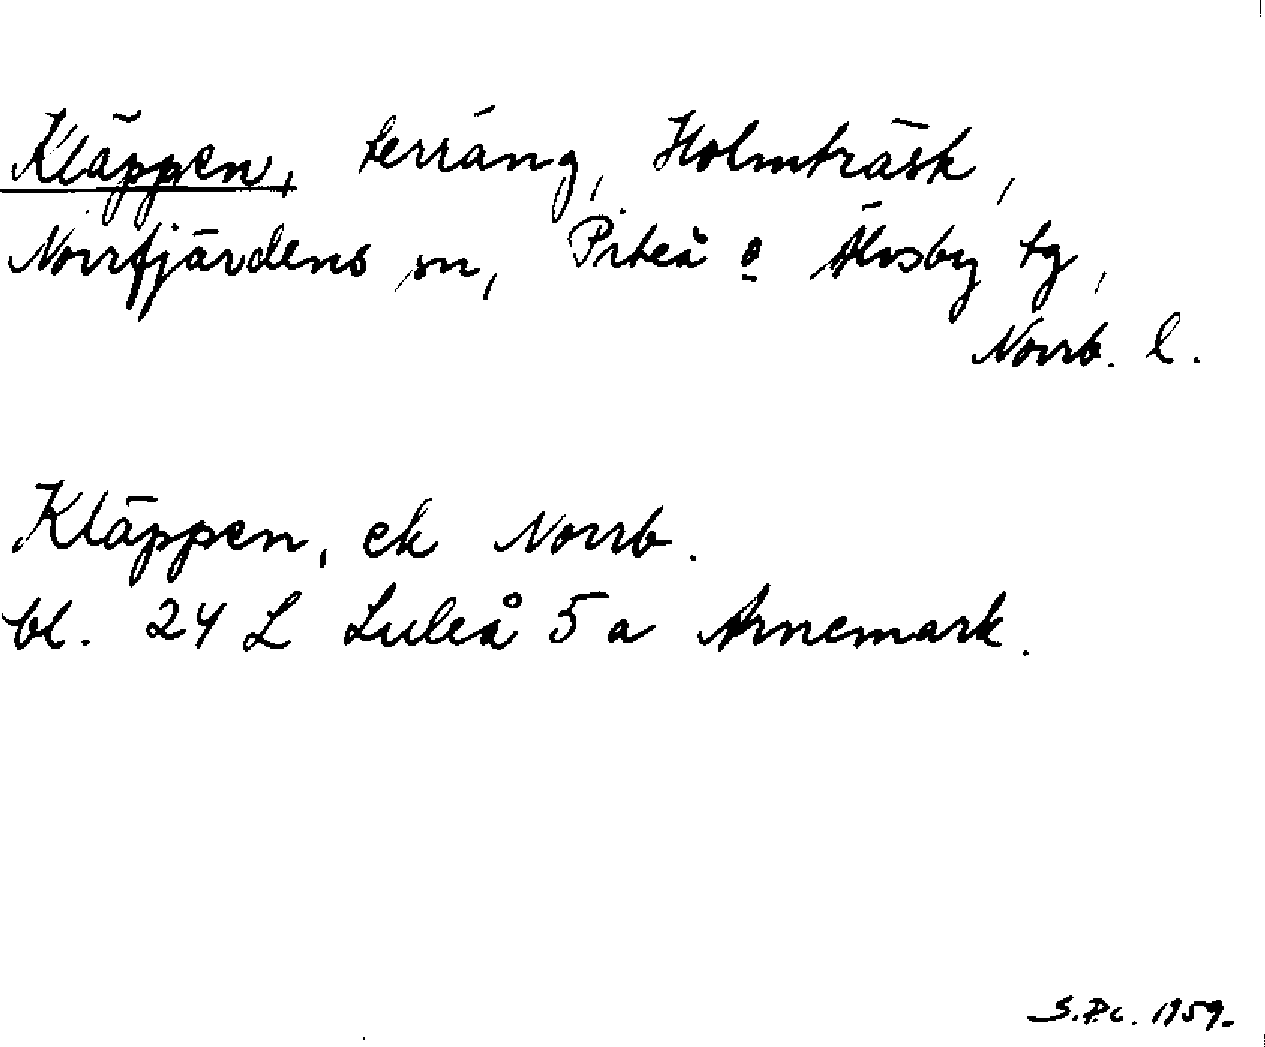 Kläppen, terräng, Holmträsk,
Norrfjärdens sn, Piteå o Älvsby tg,
Norrb. l.
Kläppen, ek Norrb.
bl. 24 L Luleå 5 a Arnemark.
S.P.c. 1959.